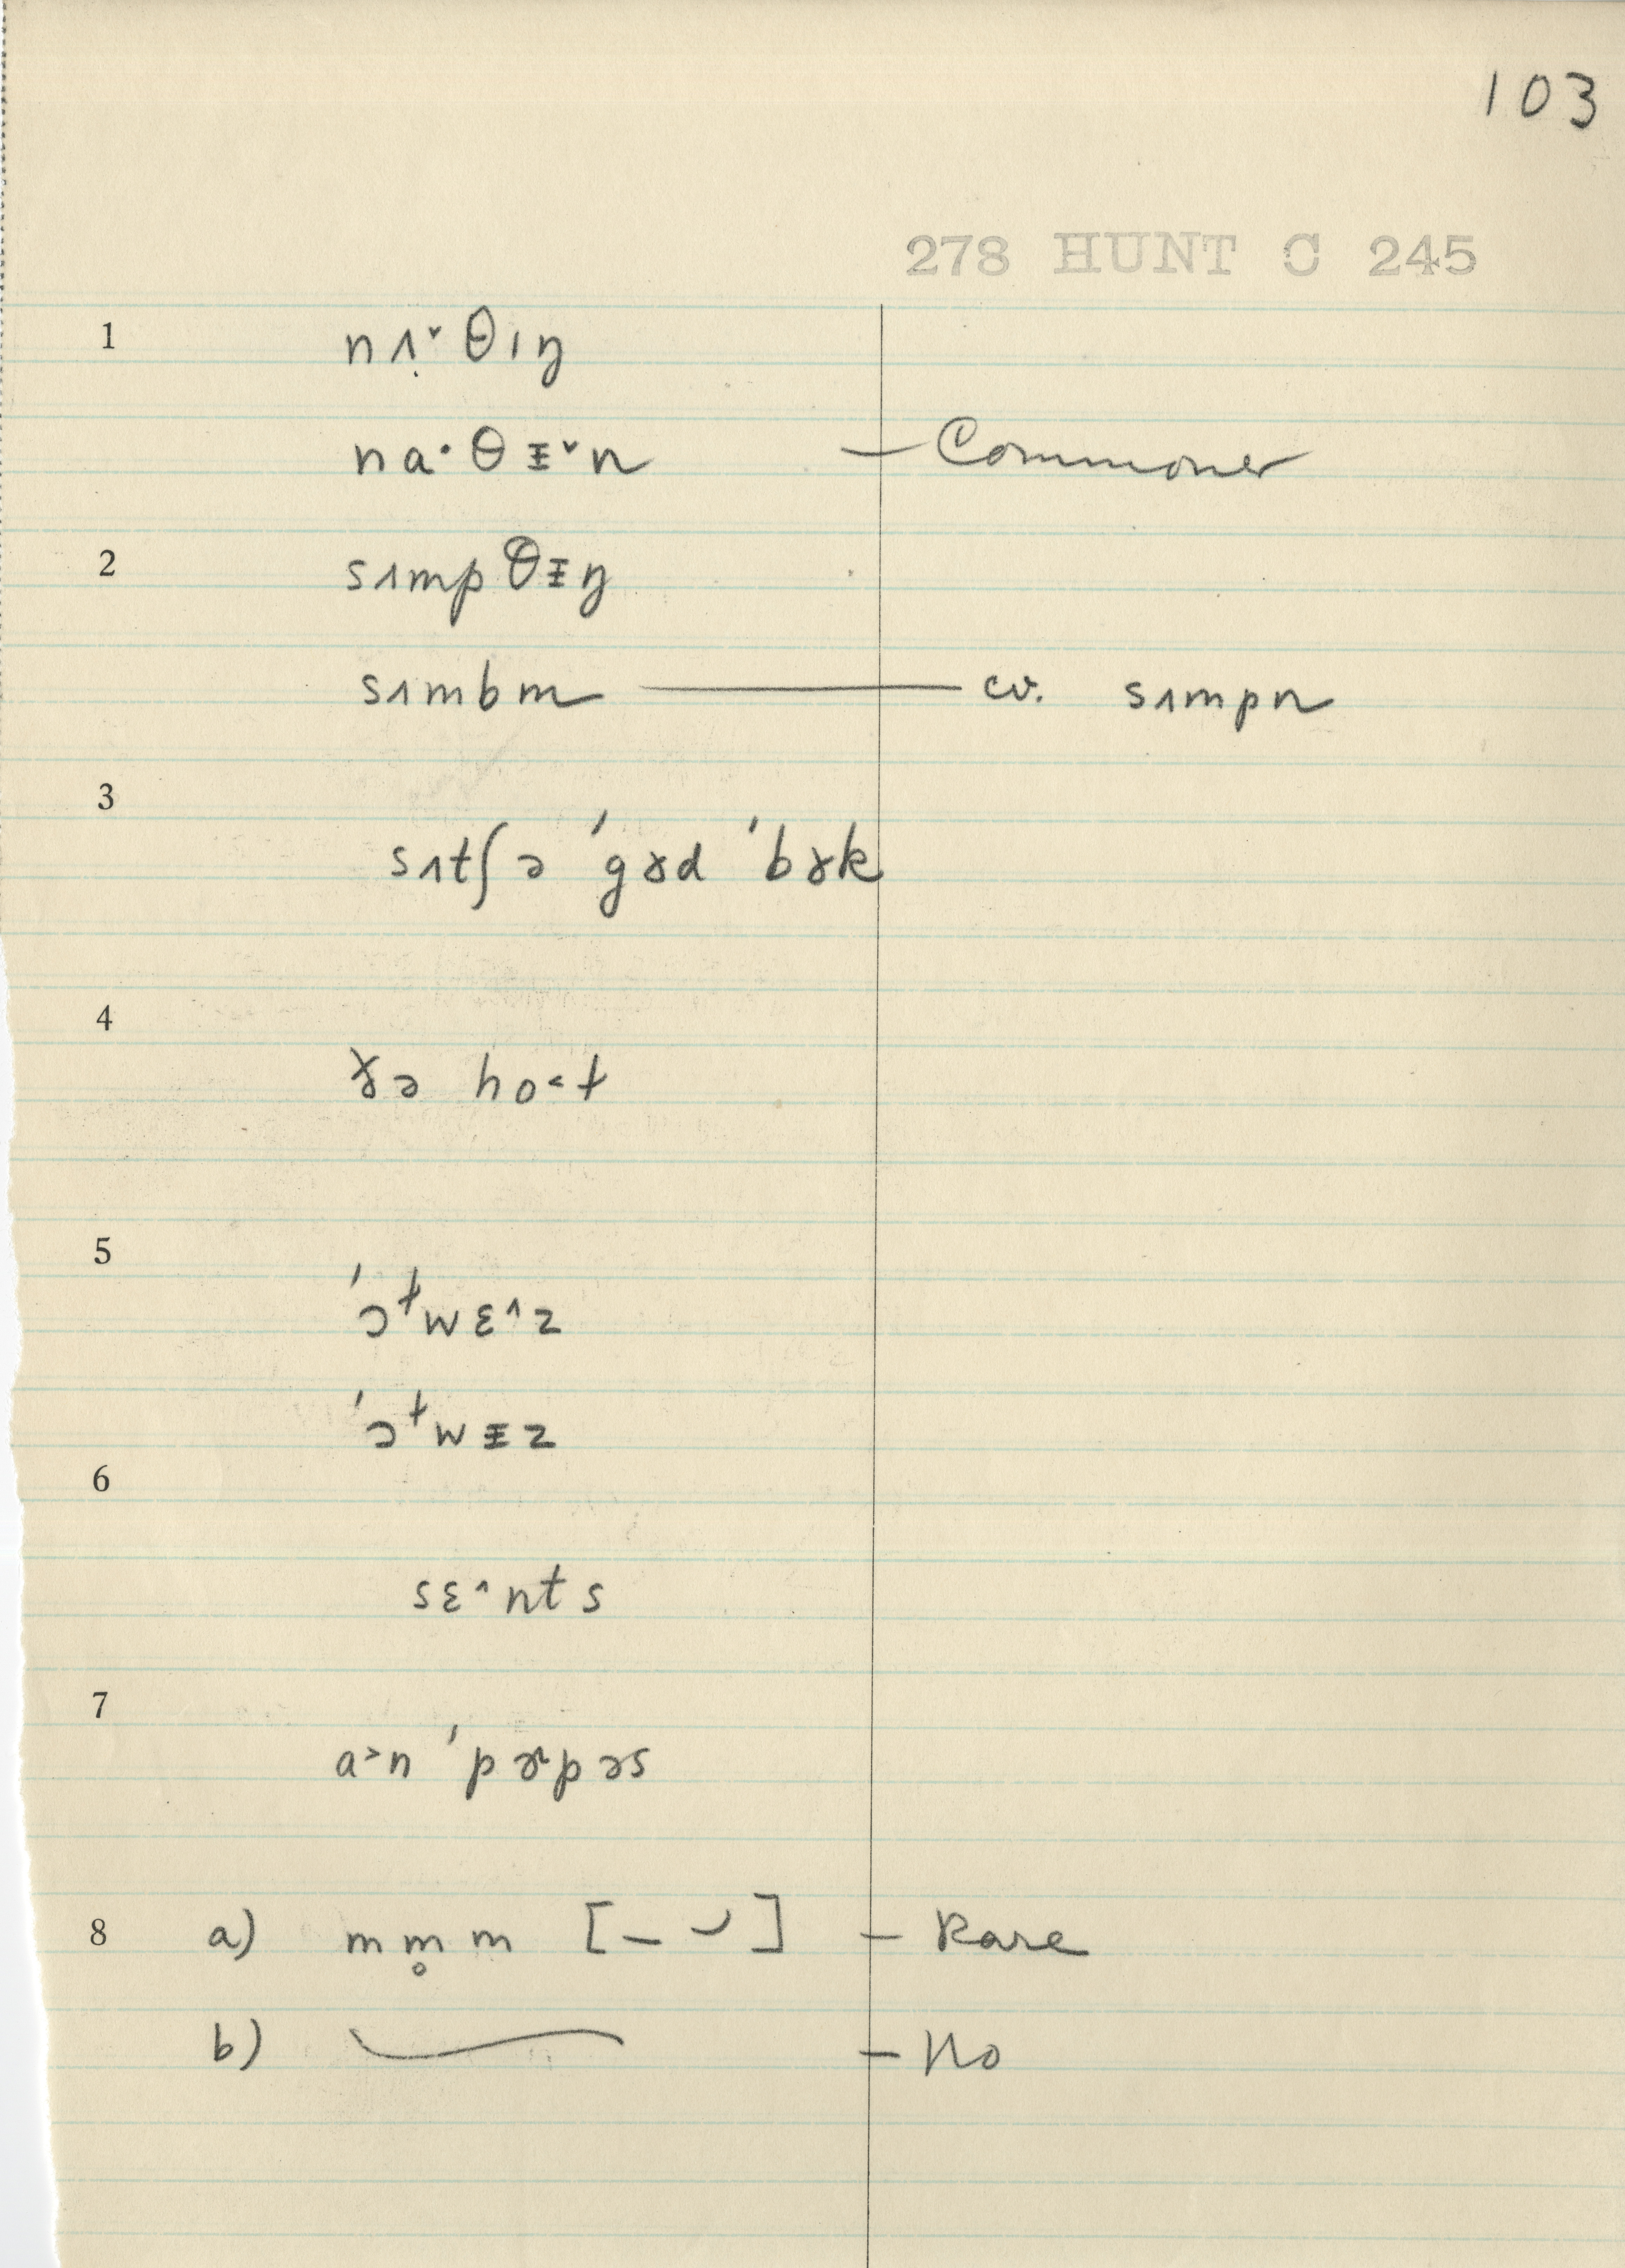 103
278 HUNT C 245
1 nʌ̣ˇθɪŋ
na·θᵻˇn — Commoner
2 sʌmpθᵻŋ
sʌmbm — cv. sʌmpn
3
sʌtʃə ˈgɤd ˈbɤk
4
ɤə ho˂t
5
ˈɔɫwɛ^z
ˈɔɫwᵻz
6
sɛ^nts
7
a˃n ˈpɚpəs
8 a) mm̥m [– ⌣] – Rare
b) – No